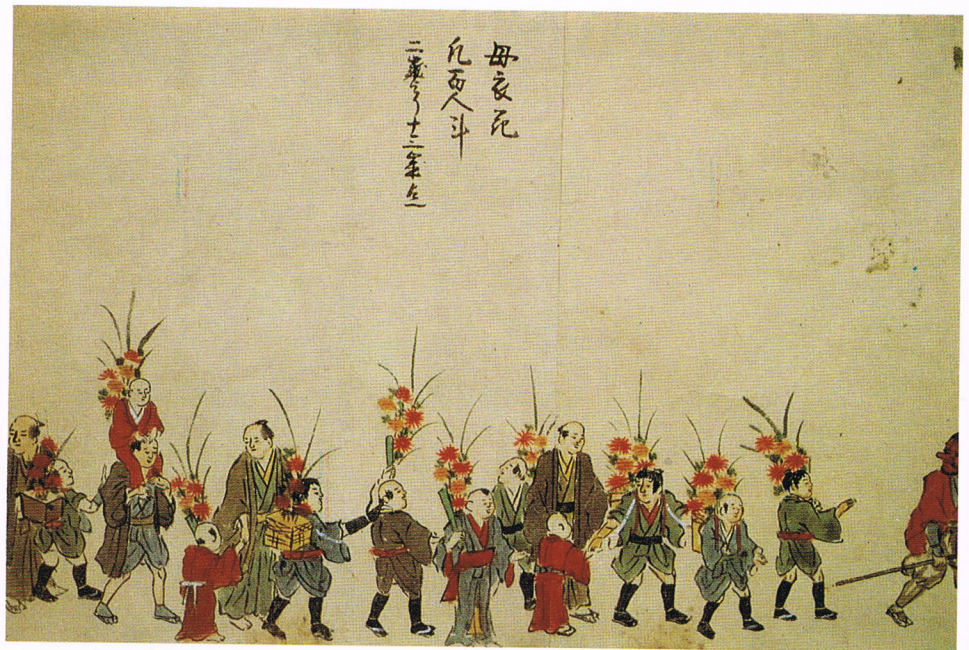 母衣花
凡百人斗
二歳より十二歳迄